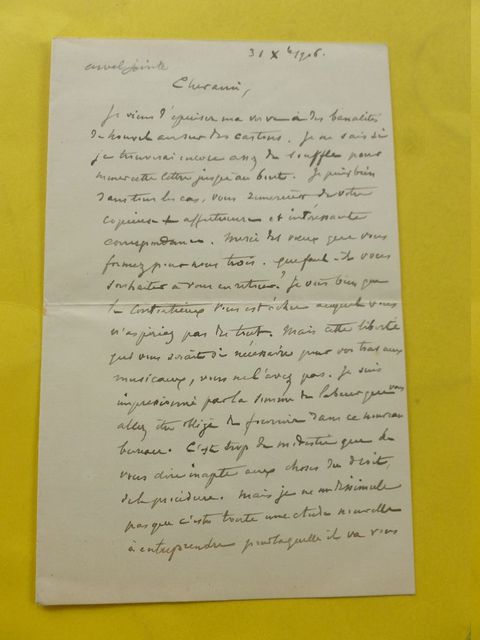 31 Xbre 1906.
Cher ami,
Je viens d'épuiser ma verve à des banalités
de nouvel an sur des cartons. Je ne sais si
je trouverai encore assez de souffle pour
mener cette lettre jusqu'au bout. Je puis bien
dans tous les cas, vous remercier de votre
copieuse, affectueuse et intéressante
correspondance. Merci des vœux que vous
formez pour nous trois. Que faut-il vous
souhaiter à vous en retour? Je vois bien que
le Contentieux vous est échu auquel vous
n'aspiriez pas du tout. Mais cette liberté
qui vous serait si nécessaire pour vos travaux
musicaux, vous ne l'avez pas. Je suis
impressionné par la somme de labeur que vous
allez être obligé de fournir dans ce nouveau
bureau. C'est trop de modestie que de
vous dire inapte aux choses du droit,
de la procédure. Mais je ne me dissimule
pas que c'est toute une étude nouvelle
à entreprendre pour laquelle il va vous